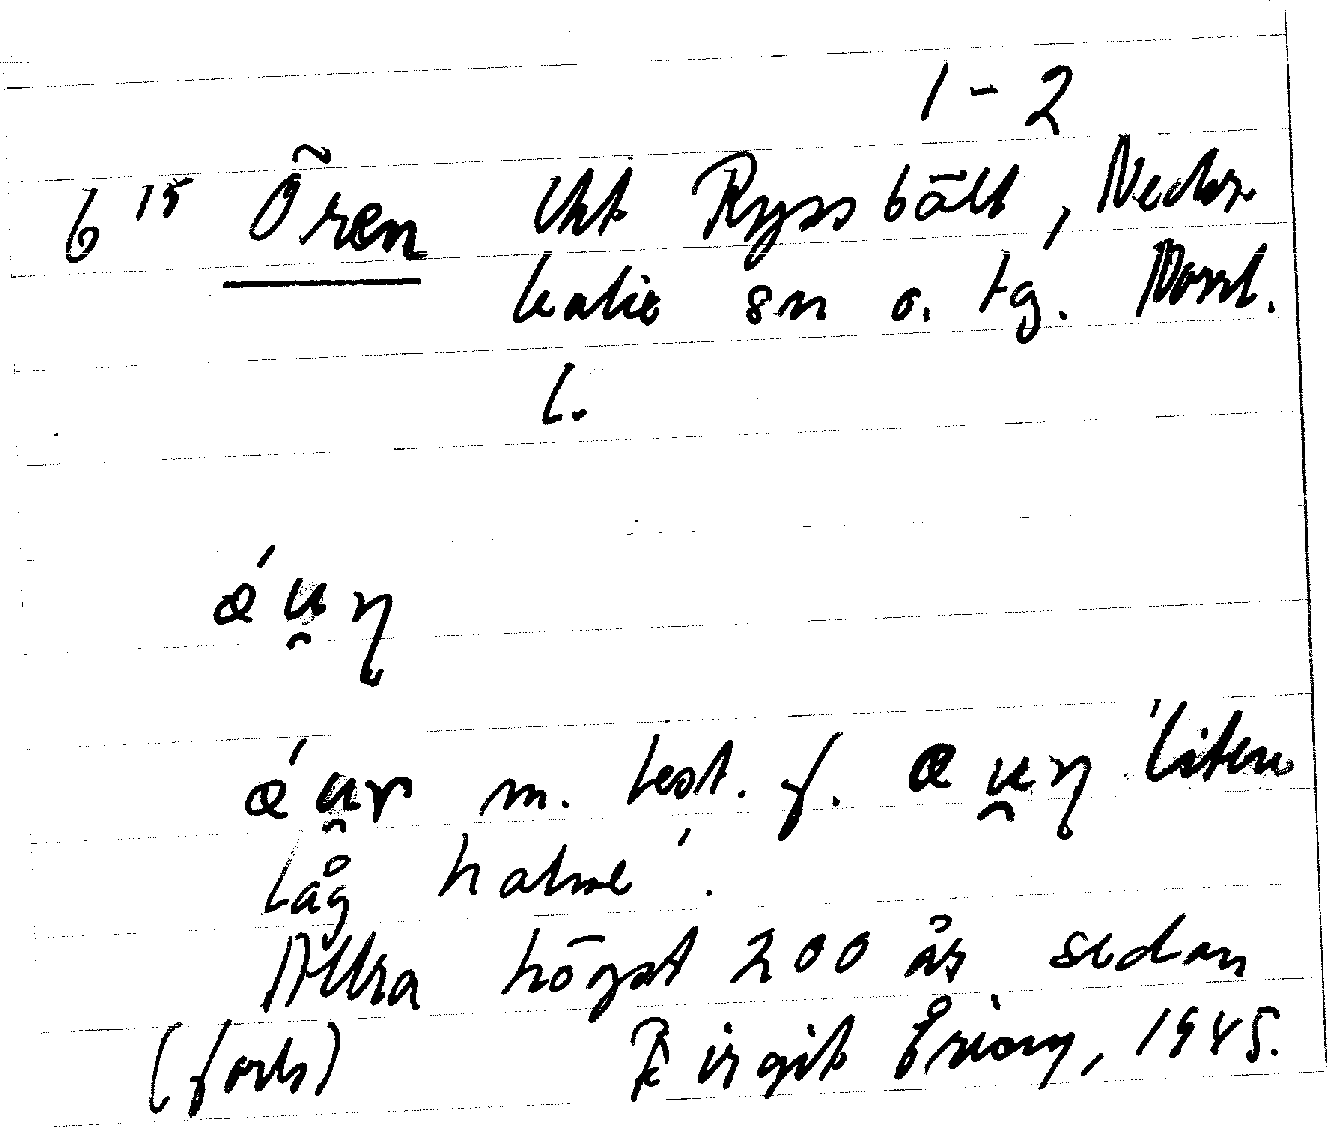 1-2
6 15 Ören Ukt Ryssbält, Neder
kalix sn o. tg. Norrb.
l.
ǽu̯ɳ
ǽu̯r m. best. f. æu̯ɳ 'liten
låg holme'.
Allra högst 200 år sedan
(forts) Birgit 1945.